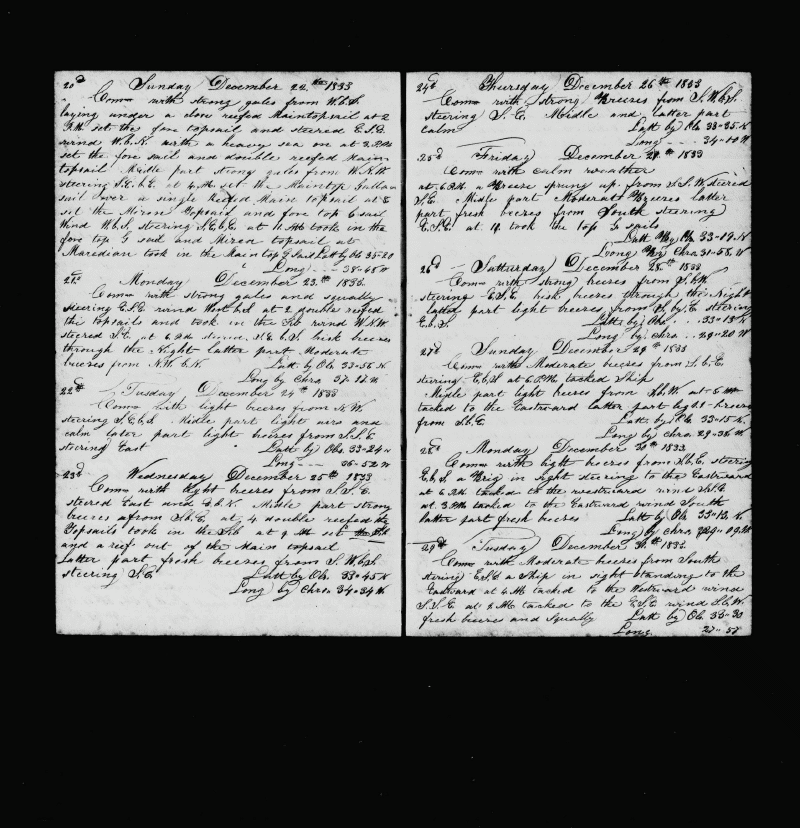 20d Sunday December 22th 1833
Coms with strong gales from W.b.S.
laying under a close reefed Maintopsail at 2
P.M set the fore topsail and steered E.S.E
wind W.b.N. with a heavy sea on at 3 P.M
set the fore sail and double reefed Main
topsail Midle part strong gales from W.N.W
steering S.E.b.E. at 4 M set the Maintop Gallan
sail over a single Reefed Main topsail at 8
set the Mizon Topsaid and fore top G sail
Wind W.b.S. steering S.E.b.E at 11 M took in the
fore top G sail and Mizen topsail at
Maredian took in the Maintop G Sail Latt by Ob 35-20
Long 38-45 W
21t Monday December 23th 1833
Coms with strong gales and squally
steering E.S.E wind West b.S at 2 double reefed
the topsails and took in the Jib wind W.N.W
steered S.E at 6 P.M S.E.b.S brisk breezes
through the Night latter part Moderate
breezes from N.W.b.N Latt by Ob 33-56 N
Long by Chro 37-12 W
22d Tusday December 24th 1833
Coms with light breezes from N.W.
steering S.E.b.S. Midle part light airs and
calm later part light breezes from S.S.E
steering East Latt by Obs 33-24 N
Long 36-52 W
23d Wednesday December 25th 1833
Coms with light breezes from S.S.E.
steered East and E.b.N Midle part strong
breezes afrom S.b.E. at 4 double reefed the
Topsails took in the Jib at 9 M set the Jib
and a reef out of the Main topsail
Latter part fresh breezes from S.W.b.S.
steering S.E Latt by Ob. 33-45 N
Long by Chro. 34-34 W
24d Thursday December 26th 1833
Coms with strong Breezes from S.W.b.S.
steering S.E. Midle and latter part
calm Latt by Ob 33-35 N
Long 34-00 W
25d Friday December 27th 1833
Coms with calm weather
at 6 P.M a Breeze sprung up from S.S.W steered
S.E. Midle part Moderate Breezes latter
part fresh beezes from South steering
E.S.E at 4 took the top G sails
Latt By Ob 33-19 N
Loong By Chro 31-58 W
26d Satturday December 28th 1833
Coms with strong beezes from S.b.W
steering E.S.E. bisk beezes through the Night
latted part light beezes from S.by.E steering
E.b.S. Latt by Obs 33-13 N
Long by Chro 29-20 W
27d Sunday December 29th 1833
Coms with Moderate beezes from S.b.E.
steering E.b.S at 6 P.M tacked Ship
Midle part light beezes from S.b.W at 5
tacked to the Eastward latter part light breezes
from S.b.E Latt by Ob 33-15 N.
Long by chro 29-36 W
28d Monday December 30th 1833
Coms with light beezes from S.b.E. steering
E.b.S. a Brig in sight steering to the Eastward
at 6 P.M tacked to the westward wind S.S.E
at 3 P.M tacked to the Eastward wind South
latter part fresh beezes Latt by Ob 33-13 N
Long by chro 29-09 W
29d Tusday December 31th 1833
Coms with Moderate beezes from South
stering E.S.E a Ship in sight standing to the
Eastward at 4 M tacked to the Westward wind
S.S.E at 8 M tacked to the E.S.E wind S.b.W.
fresh beezes and squally Latt by Ob 33-30
Long. 27-57